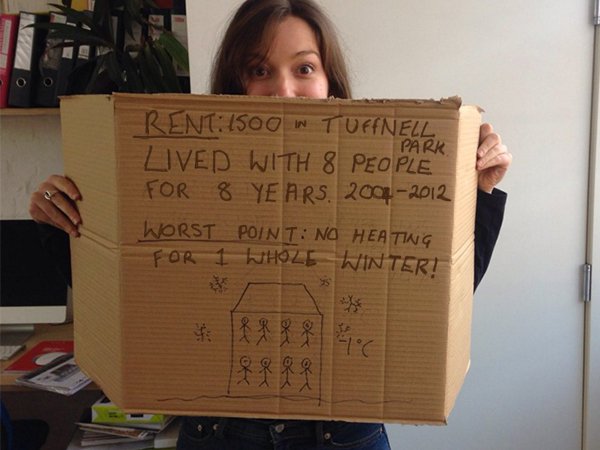 RENT: 1500 IN TUFFNELL
PARK.
LIVED WITH 8 PEOPLE
FOR 8 YEARS. 2004-2012
WORST POINT: NO HEATING
FOR 1 WHOLE WINTER!
-1°C